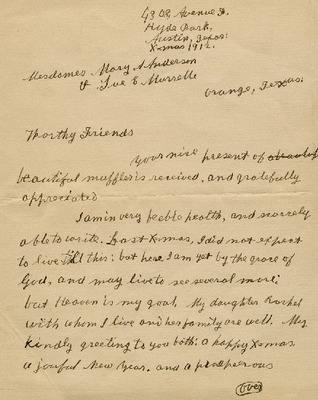 Avenue
Hyde Park,
Austin, Texas:
X-mas 191
Mesdames Mary A Anderson
& E Murrelle
Orange, Texas.
Worthy Friends
Your nice present of
beautiful muffler is received, and gratefully
appreciated
I am in very feeble health, and scarcely
able to write. Last X-mas, I did not expect
to live till this: but here I am yet by the grace of
God, and may live to see several more;
but Heaven is my goal. My daughter Rachel
with whom I live and her family are well. My
kindly greeting to you both: a happy X-mas
a joyful New Year, and a prosperous
over